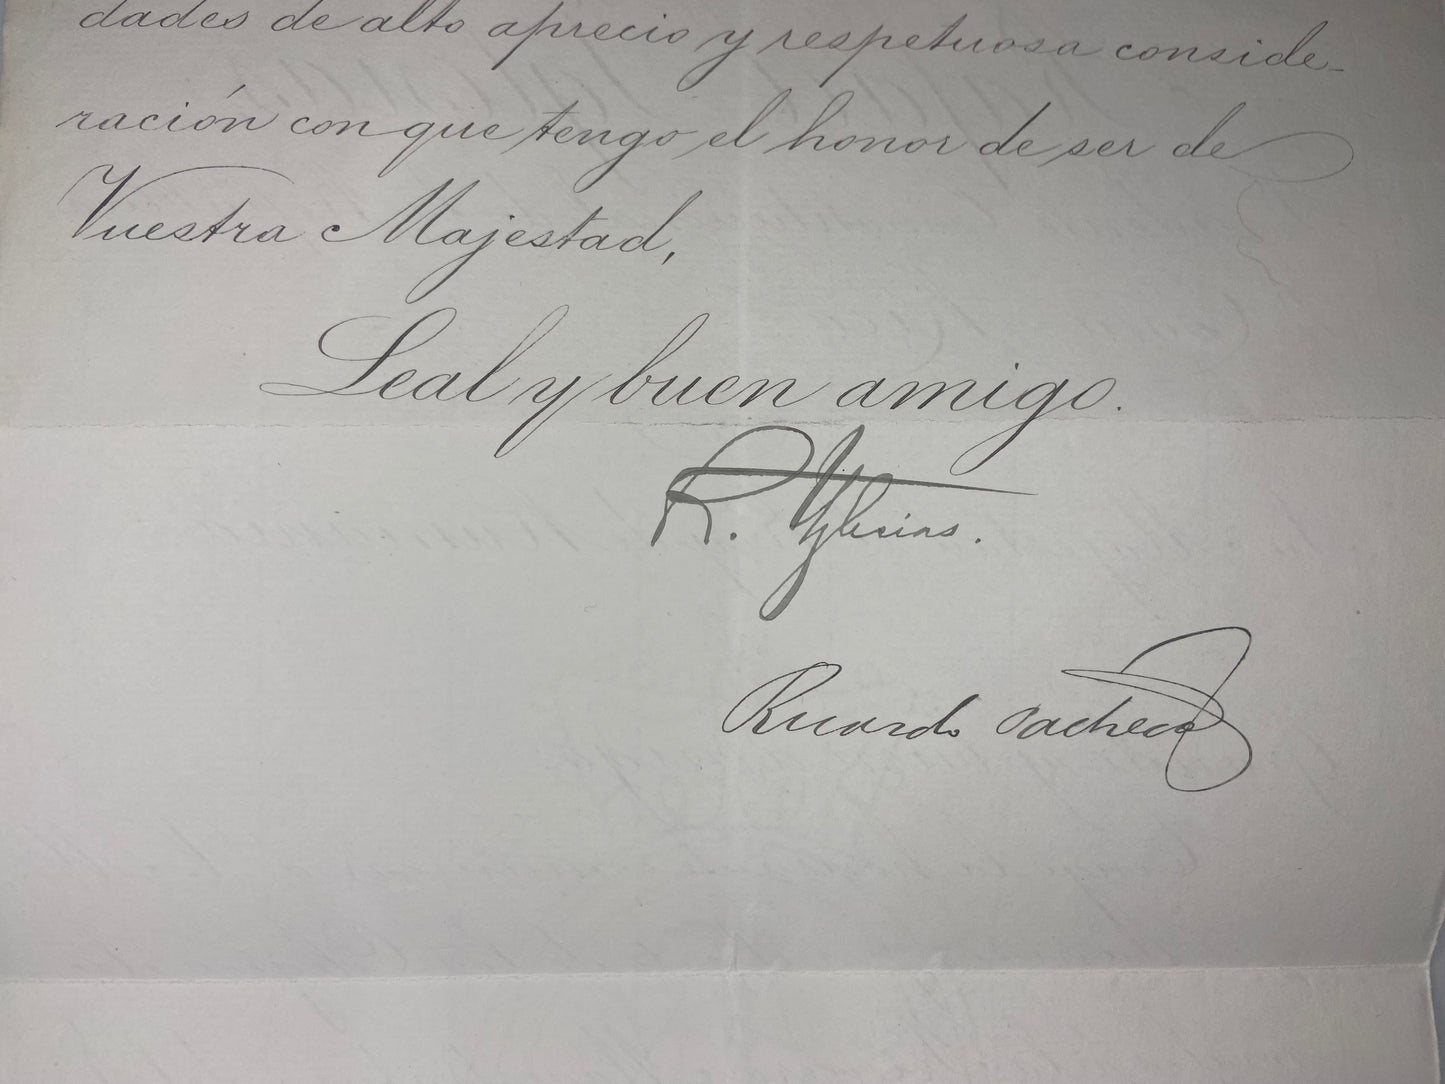 dades de alto aprecio y respetuosa conside-
ración con que tengo el honor de ser de
Vuestra Majestad,
Leal y buen amigo.
R. Yglesias.
Ricardo Pacheco